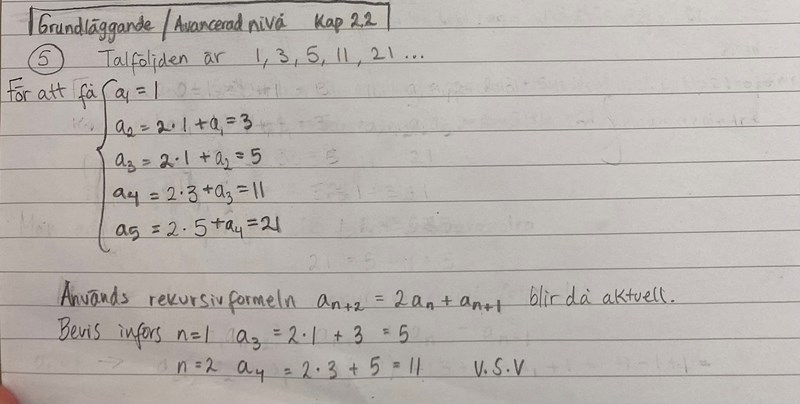 Grundläggande / Avancerad nivå Kap 2.2
5 Talföljden är 1, 3, 5, 11, 21 ...
För att få { a₁ = 1
a₂ = 2·1 + a₁ = 3
a₃ = 2·1 + a₂ = 5
a₄ = 2·3 + a₃ = 11
a₅ = 2·5 + a₄ = 21
Används rekursivformeln aₙ₊₂ = 2aₙ + aₙ₊₁ blir då aktuell.
Bevis införs n=1 a₃ = 2·1 + 3 = 5
→ n=2 a₄ = 2·3 + 5 = 11 V.S.V